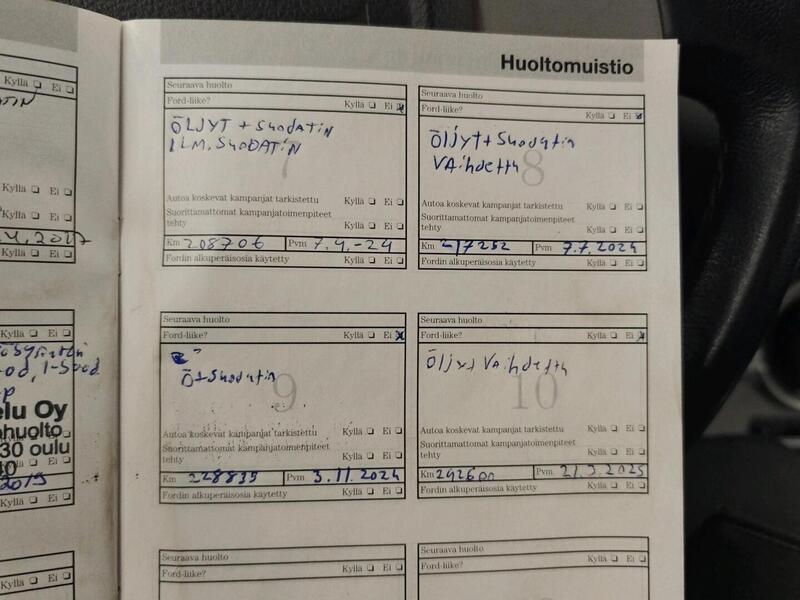 Huoltomuistio
Kyllä ☐ Ei ☐
Kyllä ☐ Ei ☐
Kyllä ☐ Ei ☐
Kyllä ☐ Ei ☐
Kyllä ☐ Ei ☐
elu Oy
ahuolto
30 oulu
2019
Kyllä ☐ Ei ☐
Kyllä ☐ Ei ☐
Seuraava huolto
Ford-liike? Kyllä ☐ Ei ☒
ÖLJYT + SuoDATiN
ILM. SUODATiN
7
Autoa koskevat kampanjat tarkistettu Kyllä ☐ Ei ☐
Suorittamattomat kampanjatoimenpiteet
tehty Kyllä ☐ Ei ☐
Km 208706 Pvm 7.4.-24
Fordin alkuperäisosia käytetty Kyllä ☐ Ei ☐
Seuraava huolto
Ford-liike? Kyllä ☐ Ei ☒
Öljyt+Suodatin
VAihdettu
8
Autoa koskevat kampanjat tarkistettu Kyllä ☐ Ei ☐
Suorittamattomat kampanjatoimenpiteet
tehty Kyllä ☐ Ei ☐
Km 217252 Pvm 7.7.2024
Fordin alkuperäisosia käytetty Kyllä ☐ Ei ☐
Seuraava huolto
Ford-liike? Kyllä ☐ Ei ☒
Ö+Suodatin
9
Autoa koskevat kampanjat tarkistettu Kyllä ☐ Ei ☐
Suorittamattomat kampanjatoimenpiteet
tehty Kyllä ☐ Ei ☐
Km 228839 Pvm 3.11.2024
Fordin alkuperäisosia käytetty Kyllä ☐ Ei ☐
Seuraava huolto
Ford-liike? Kyllä ☐ Ei ☒
Öljyt VAihdettu
10
Autoa koskevat kampanjat tarkistettu Kyllä ☐ Ei ☐
Suorittamattomat kampanjatoimenpiteet
tehty Kyllä ☐ Ei ☐
Km 242600 Pvm 21.3.2025
Fordin alkuperäisosia käytetty Kyllä ☐ Ei ☐
Seuraava huolto
Ford-liike? Kyllä ☐ Ei ☐
Seuraava huolto
Ford-liike? Kyllä ☐ Ei ☐